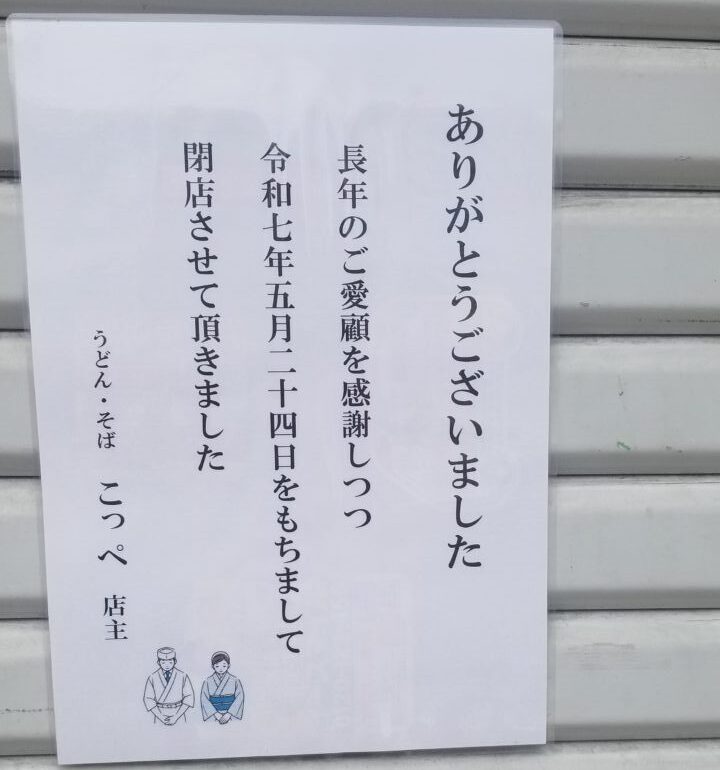 ありがとうございました
長年のご愛顧を感謝しつつ
令和七年五月二十四日をもちまして
閉店させて頂きました
うどん・そば こっぺ 店主